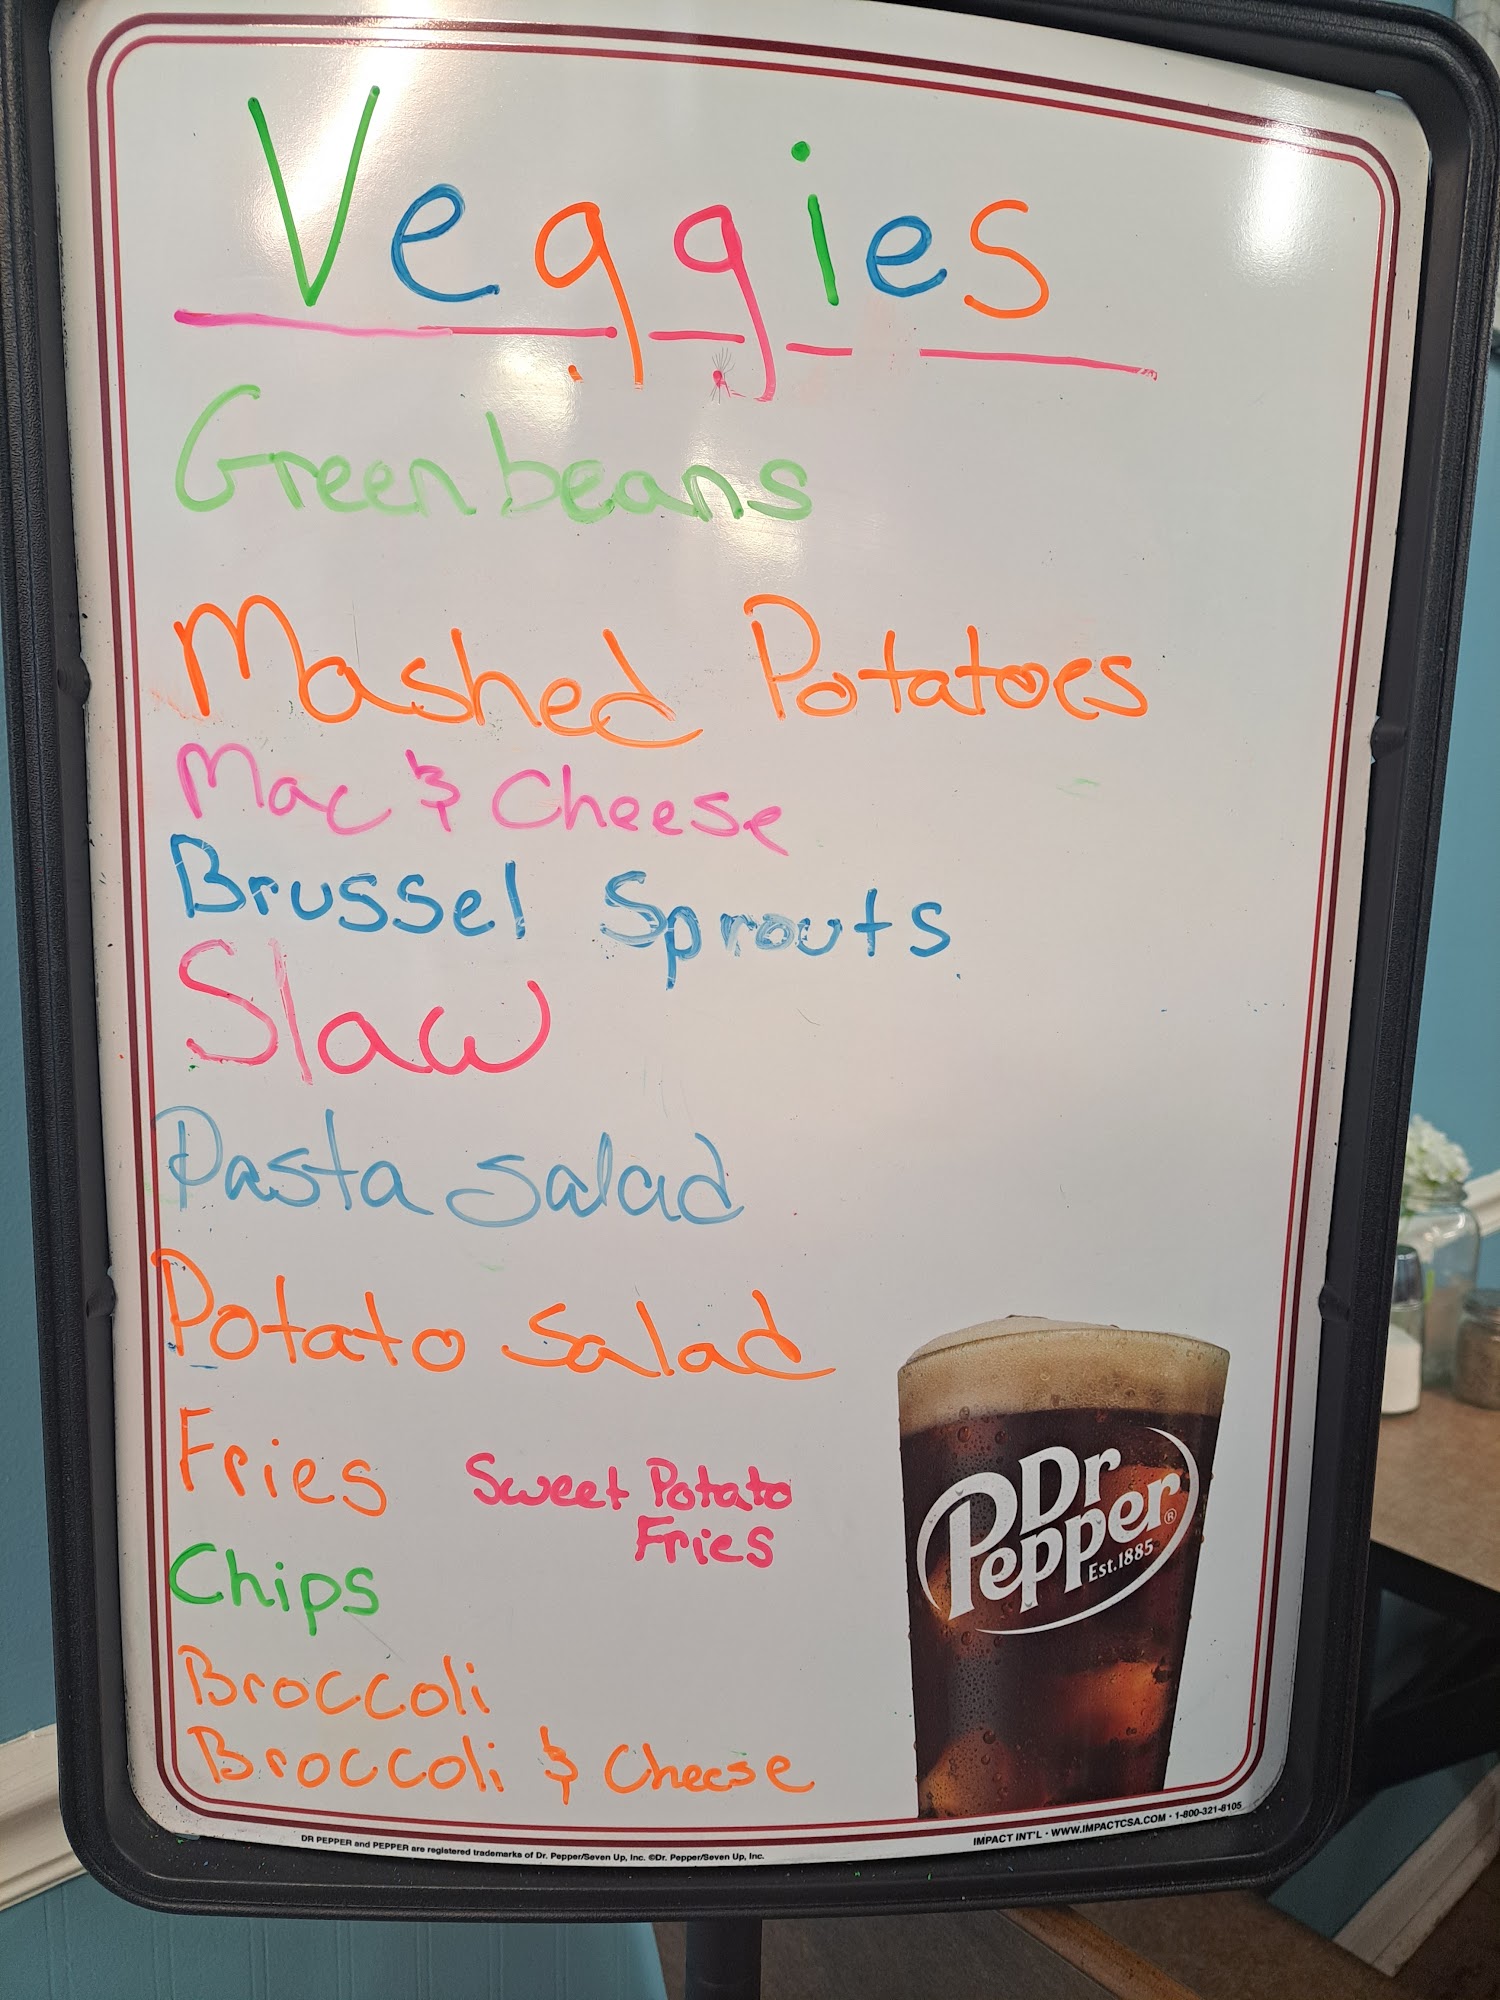 Veggies
Green beans
Mashed Potatoes
Mac & Cheese
Brussel Sprouts
Slaw
Pasta Salad
Potato Salad
Fries
Sweet Potato
Fries
Chips
Broccoli
Broccoli & Cheese
Dr
Pepper®
Est.1885
DR PEPPER and PEPPER are registered trademarks of Dr. Pepper/Seven Up, Inc. ©Dr. Pepper/Seven Up, Inc.
IMPACT INT'L • WWW.IMPACTCSA.COM • 1-800-321-8105